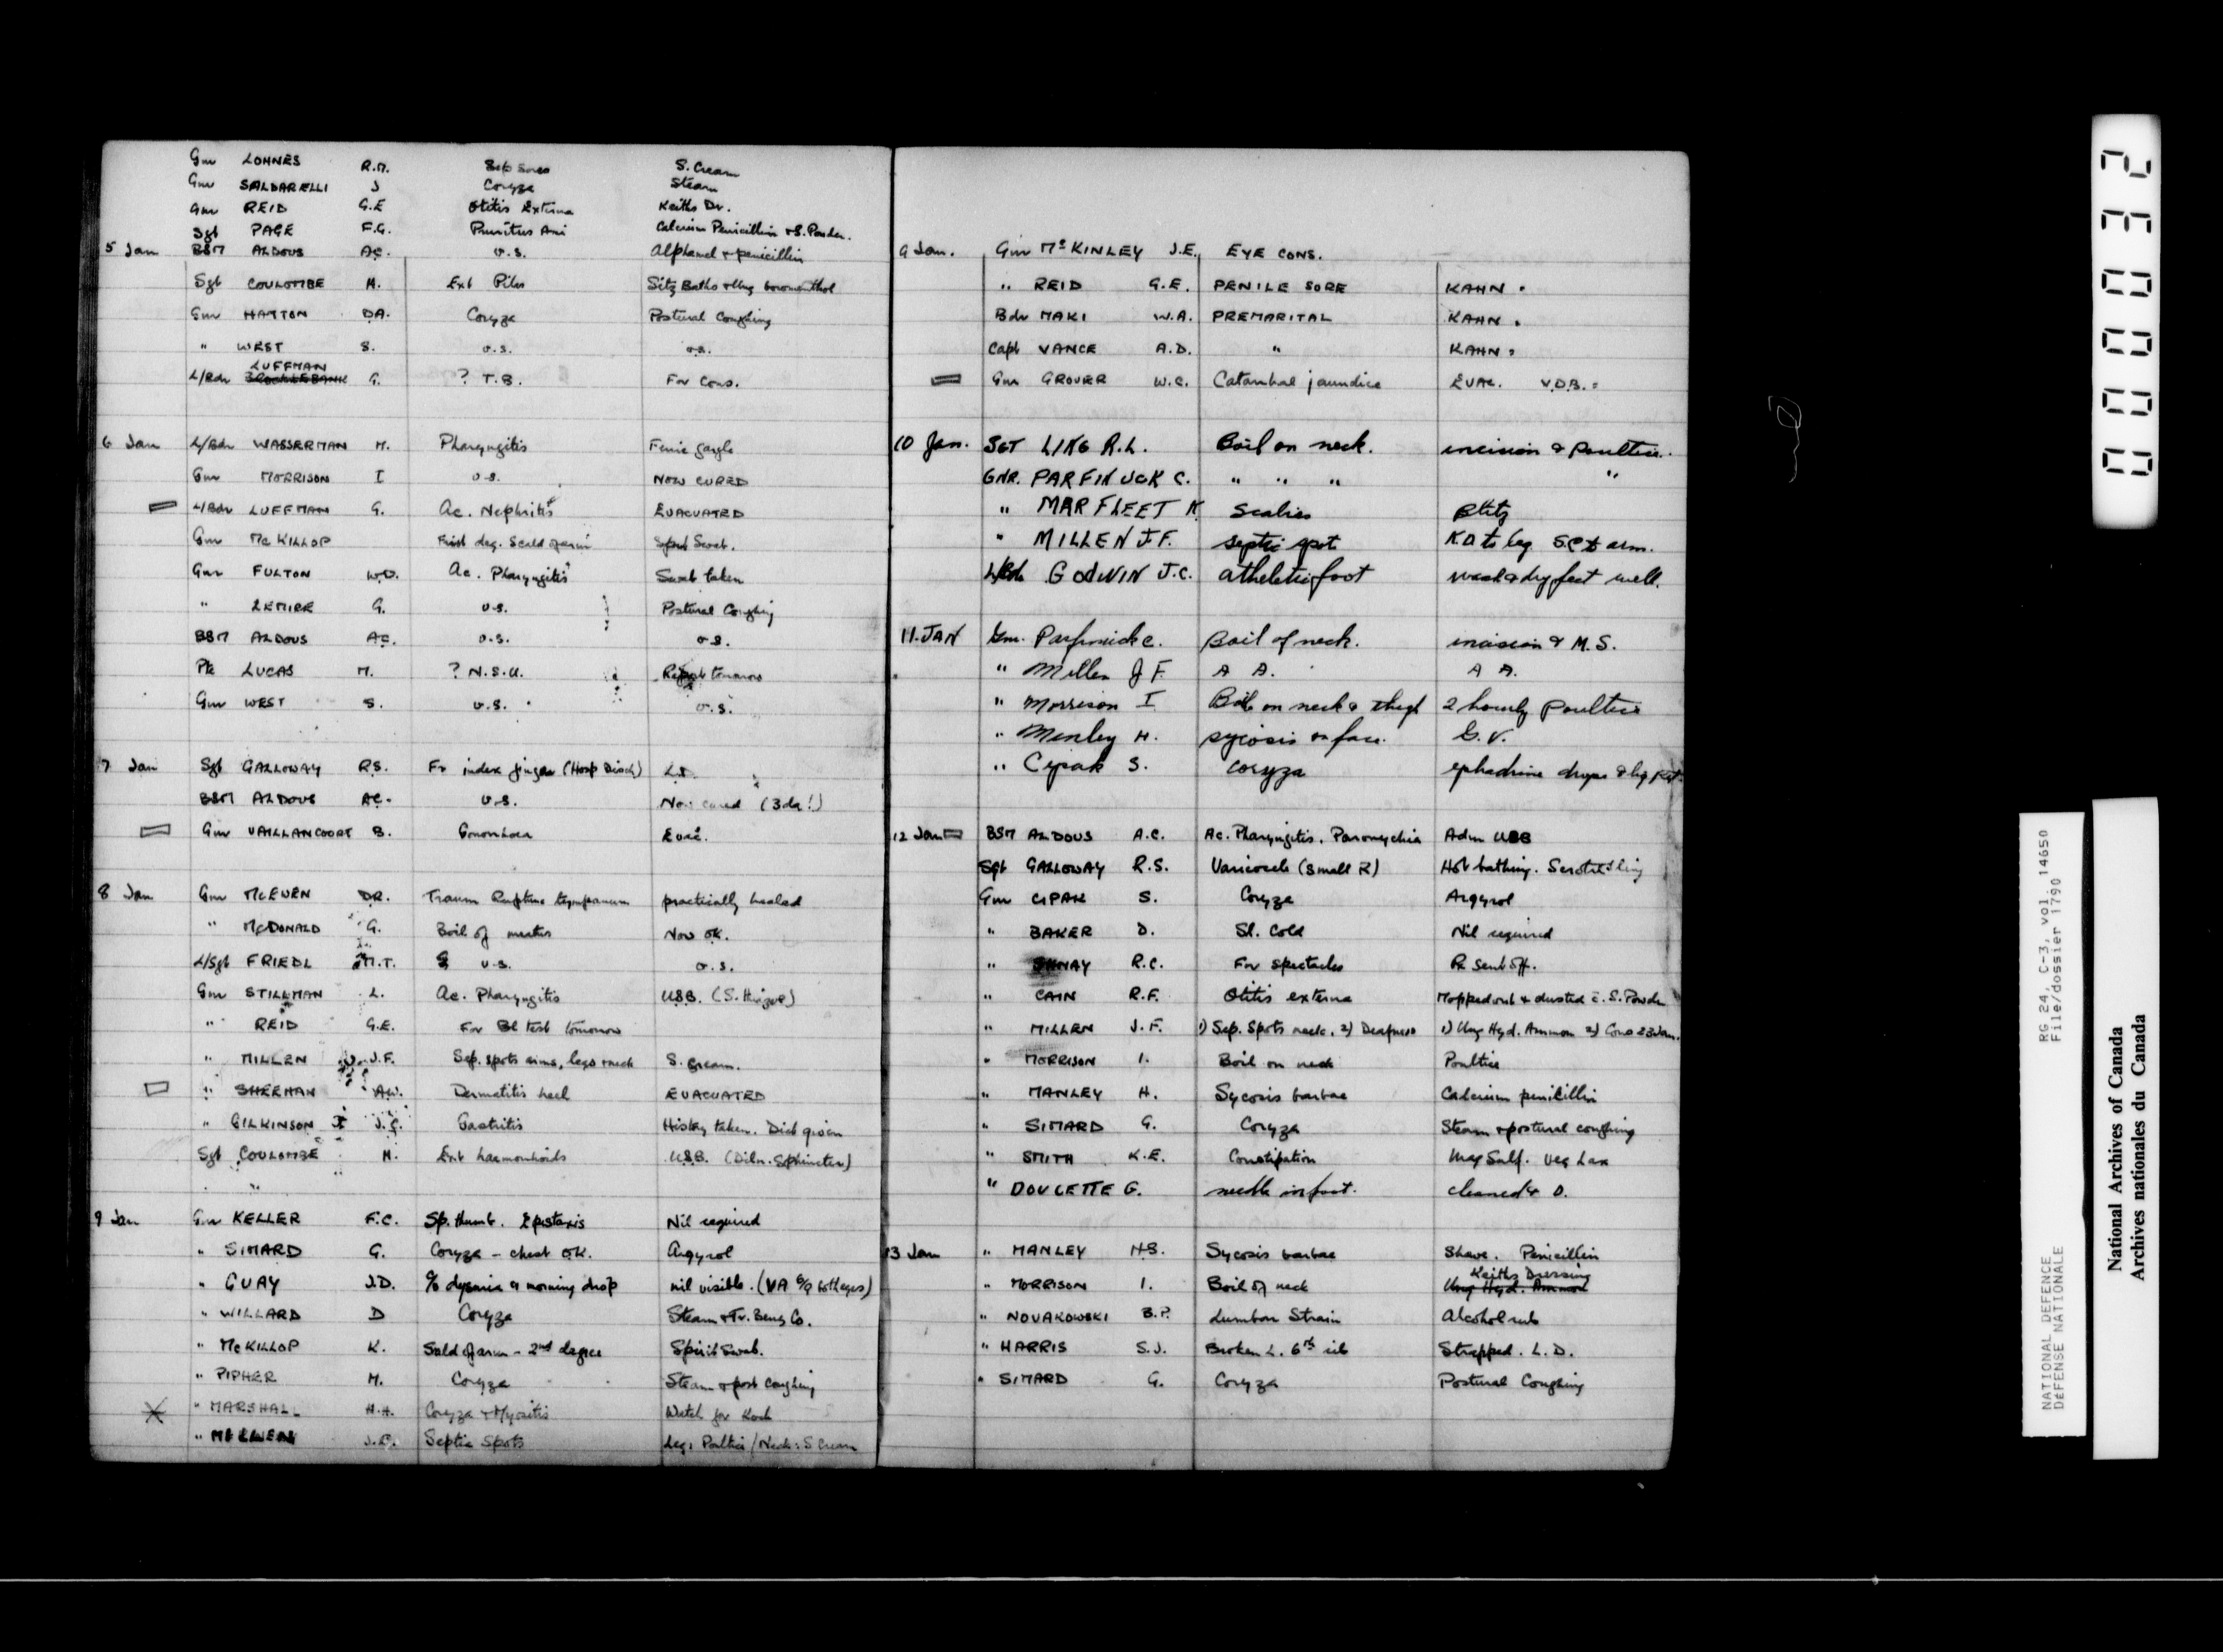 Gnr LOHNES R.M. Sep Sores S. Cream
Gnr SALDARELLI J Coryza Steam
Gnr REID G.E Otitis Externa Keiths Dr.
Sgt PAGE F.G. Pruritus Ani Calcium Penicillin + S. Powder.
5 Jan BSM ALDOUS AC. o.s. Alphamel + penicillin
Sgt COULOMBE M. Ext Piles Sitz Baths + Ung boromenthol
Gnr HATTON DA. Coryza Postural Coughing
" WEST S. o.s. o.s.
LUFFMAN
L/Bdr BROCKLEBANK G. ? T.B. For Cons.
6 Jan L/Bdr WASSERMAN M. Pharyngitis Ferric gargle
Gnr MORRISON I o.s. NOW CURED
L/Bdr LUFFMAN G. Ac. Nephritis EVACUATED
Gnr McKILLOP First deg. Scald of arm Spirit Swab.
Gnr FULTON W.D. Ac. Pharyngitis Swab taken
" LEMIRE G. o.s. Postural Coughing
BSM ALDOUS AC. o.s. o.s.
Pte LUCAS M. ? N.S.U. Report tomorrow
Gnr WEST S. o.s. o.s.
7 Jan Sgt GALLOWAY R.S. Fr index finger (Hosp Disch) L.D.
BSM ALDOUS AC. o.s. Now cured (3da!)
Gnr VAILLANCOURT B. Gonorrhoea Evac.
8 Jan Gnr McEWEN D.R. Traum Rupture tympanum practically healed
" McDONALD G. Boil of meatus Now OK.
L/Sgt FRIEDL M.T. o.s. o.s.
Gnr STILLMAN L. Ac. Pharyngitis USB.
" REID G.E. For Bl test tomorrow
" MILLEN J.F. Sep. spots arms, legs + neck S. Cream.
" SHEEHAN A.W. Dermatitis heel EVACUATED
" GILKINSON J.C. Gastritis History taken. Diet given
Sgt COULOMBE M. Ext haemorrhoids USB. (Diln. Sphincter)
"
9 Jan Gnr KELLER F.C. Sp. thumb. Epistaxis Nil required
" SIMARD G. Coryza - chest OK. Argyrol
" GUAY J.D. c/o dysuria & morning drop nil visible. (VA 6/9 both eyes)
" WILLARD D Coryza Steam + Tr. Benz Co.
" McKILLOP K. Scald of arm - 2nd degree Spirit Swab.
" PIPHER M. Coryza Steam + post coughing
" MARSHALL H.H. Coryza + Myositis Watch for Koch
" MILLEN J.F. Septic Spots Leg: Poultice / Neck: S Cream
9 Jan. Gnr McKINLEY J.E. EYE CONS.
" REID G.E. PENILE SORE KAHN.
Bdr MAKI W.A. PREMARITAL KAHN.
Capt VANCE A.D. " KAHN.
Gnr GROVER W.C. Catarrhal jaundice EVAC. V.D.B.
10 Jan. SGT LING R.L. Boil on neck. incision & Poultice.
GNR. PARFINUCK C. " " " "
" MARFLEET K. Scabies
" MILLEN J.F. septic spot K D to leg S.C to arm.
L/Bdr GODWIN J.C. atheletic foot wash & dry feet well.
11. JAN Gnr. Parfinuck C. Boil of neck. incision & M.S.
" Millen J F. A A. A A.
" Morrison I Boils on neck & thigh 2 hourly Poultice
" Menley H. sycosis on face. G.V.
" Cipak S. Coryza ephadrine drops
12 Jan BSM ALDOUS A.C. Ac. Pharyngitis. Paronychia Adm USB
Sgt GALLOWAY R.S. Varicocele (small R) Hot bathing. Scrotal sling
Gnr CIPAK S. Coryza Argyrol
" BAKER D. Sl. Cold Nil required
" R.C. For spectacles Rx sent off.
" CAIN R.F. Otitis externa Mopped out & dusted c̄. S. Powder
" MILLEN J.F. 1) Sep. Spots neck. 2) Deafness 1) Ung Hyd. Ammon 2) Cons 23 Jan.
" MORRISON I. Boil on neck Poultice
" MANLEY H. Sycosis barbae Calcium penicillin
" SIMARD G. Coryza Steam + postural coughing
" SMITH K.E. Constipation Mag Sulf. Veg Lax
" DOUCETTE G. needle in foot. cleaned & D.
13 Jan " MANLEY H.S. Sycosis barbae Shave. Penicillin
Keiths Dressing
" MORRISON I. Boil of neck Ung Hyd. Ammon
" NOVAKOWSKI B.P. Lumbar Strain Alcohol rub
" HARRIS S.J. Broken L. 6th rib Strapped. L.D.
" SIMARD G. Coryza Postural Coughing
000032
RG 24, C-3, vol. 14650
File/dossier 1790
NATIONAL DEFENCE
DÉFENSE NATIONALE
National Archives of Canada
Archives nationales du Canada